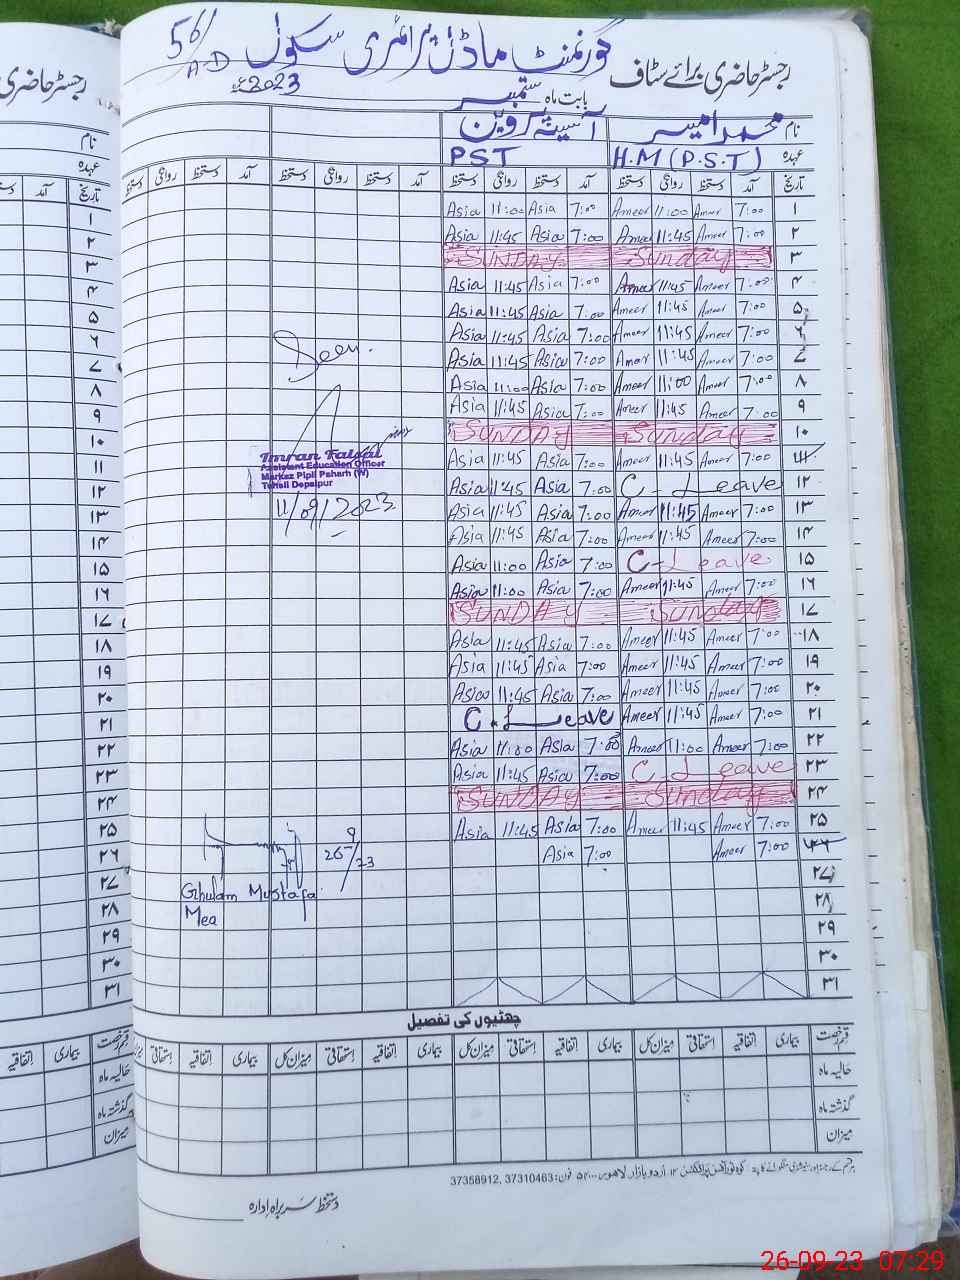 56/A-D گورنمنٹ ماڈل پرائمری سکول
رجسٹر حاضری برائے سٹاف
بابت ماہ ستمبر 2023ء
نام محمد امیر آسیہ پروین
عہدہ H.M (P.S.T) PST
تاریخ آمد دستخط روانگی دستخط آمد دستخط روانگی دستخط آمد دستخط روانگی دستخط آمد دستخط روانگی دستخط
۱ 7:00 Ameer 11:00 Ameer 7:00 Asia 11:00 Asia
۲ 7:00 Ameer 11:45 Ameer 7:00 Asia 11:45 Asia
۳ Sunday SUNDAY
۴ 7:00 Ameer 11:45 Ameer 7:00 Asia 11:45 Asia
۵ 7:00 Ameer 11:45 Ameer 7:00 Asia 11:45 Asia
۶ 7:00 Ameer 11:45 Ameer 7:00 Asia 11:45 Asia
۷ 7:00 Ameer 11:45 Amer 7:00 Asia 11:45 Asia
۸ 7:00 Ameer 11:00 Ameer 7:00 Asia 11:00 Asia
۹ 7:00 Ameer 11:45 Ameer 7:00 Asia 11:45 Asia
۱۰ Sunday SUNDAY
۱۱ 7:00 Ameer 11:45 Ameer 7:00 Asia 11:45 Asia
۱۲ C-Leave 7:00 Asia 11:45 Asia
۱۳ 7:00 Ameer 11:45 Ameer 7:00 Asia 11:45 Asia
۱۴ 7:00 Ameer 11:45 Ameer 7:00 Asia 11:45 Asia
۱۵ C-Leave 7:00 Asia 11:00 Asia
۱۶ 7:00 Ameer 11:45 Ameer 7:00 Asia 11:00 Asia
۱۷ Sunday SUNDAY
۱۸ 7:00 Ameer 11:45 Ameer 7:00 Asia 11:45 Asia
۱۹ 7:00 Ameer 11:45 Ameer 7:00 Asia 11:45 Asia
۲۰ 7:00 Ameer 11:45 Ameer 7:00 Asia 11:45 Asia
۲۱ 7:00 Ameer 11:45 Ameer C.Leave
۲۲ 7:00 Ameer 11:00 Ameer 7:00 Asia 11:00 Asia
۲۳ C-Leave 7:00 Asia 11:45 Asia
۲۴ Sunday SUNDAY
۲۵ 7:00 Ameer 11:45 Ameer 7:00 Asia 11:45 Asia
۲۶ 7:00 Ameer 7:00 Asia
۲۷
۲۸
۲۹
۳۰
۳۱
Seen.
Imran Faisal
Assistent Education Officer
Markaz Pipli Paharh (W)
Tehsil Depalpur
11/09/2023
26/9/23
Ghulam Mustafa
Mea
چھٹیوں کی تفصیل
قسم رخصت بیماری اتفاقیہ استحقاقی میزان کل بیماری اتفاقیہ استحقاقی میزان کل بیماری اتفاقیہ استحقاقی میزان کل بیماری اتفاقیہ استحقاقی
حالیہ ماہ
گذشتہ ماہ
میزان
اردو بازار لاہور فون: 37310463, 37358912
دستخط سربراہ ادارہ
رجسٹر حاضری
نام
عہدہ
تاریخ آمد دستخط
۱
۲
۳
۴
۵
۶
۷
۸
۹
۱۰
۱۱
۱۲
۱۳
۱۴
۱۵
۱۶
۱۷
۱۸
۱۹
۲۰
۲۱
۲۲
۲۳
۲۴
۲۵
۲۶
۲۷
۲۸
۲۹
۳۰
۳۱
قسم رخصت بیماری اتفاقیہ
حالیہ ماہ
گذشتہ ماہ
میزان
26-09-23 07:29